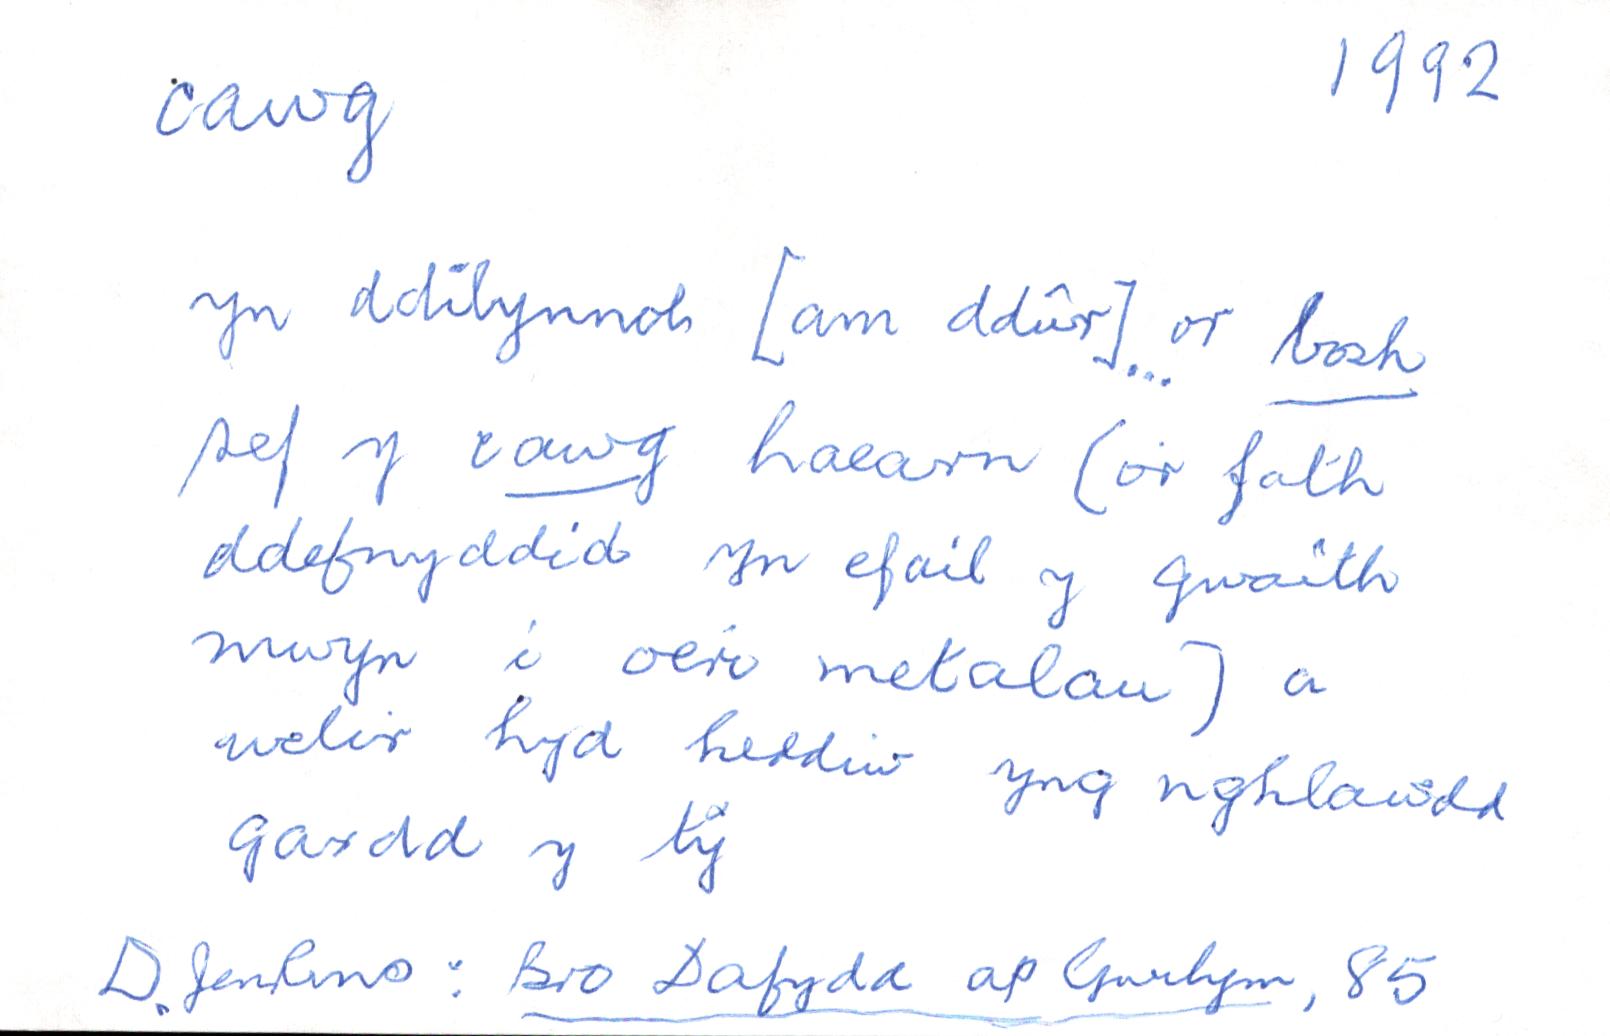 cawg 1992
yn ddilynnol [am ddŵr]... or bosh
sef y cawg haearn (o'r fath
ddefnyddid yn efail y gwaith
mwyn i oeri metalau) a
welir hyd heddiw yng nghlawdd
gardd y tŷ
D. Jenkins: Bro Dafydd ap Gwilym, 85